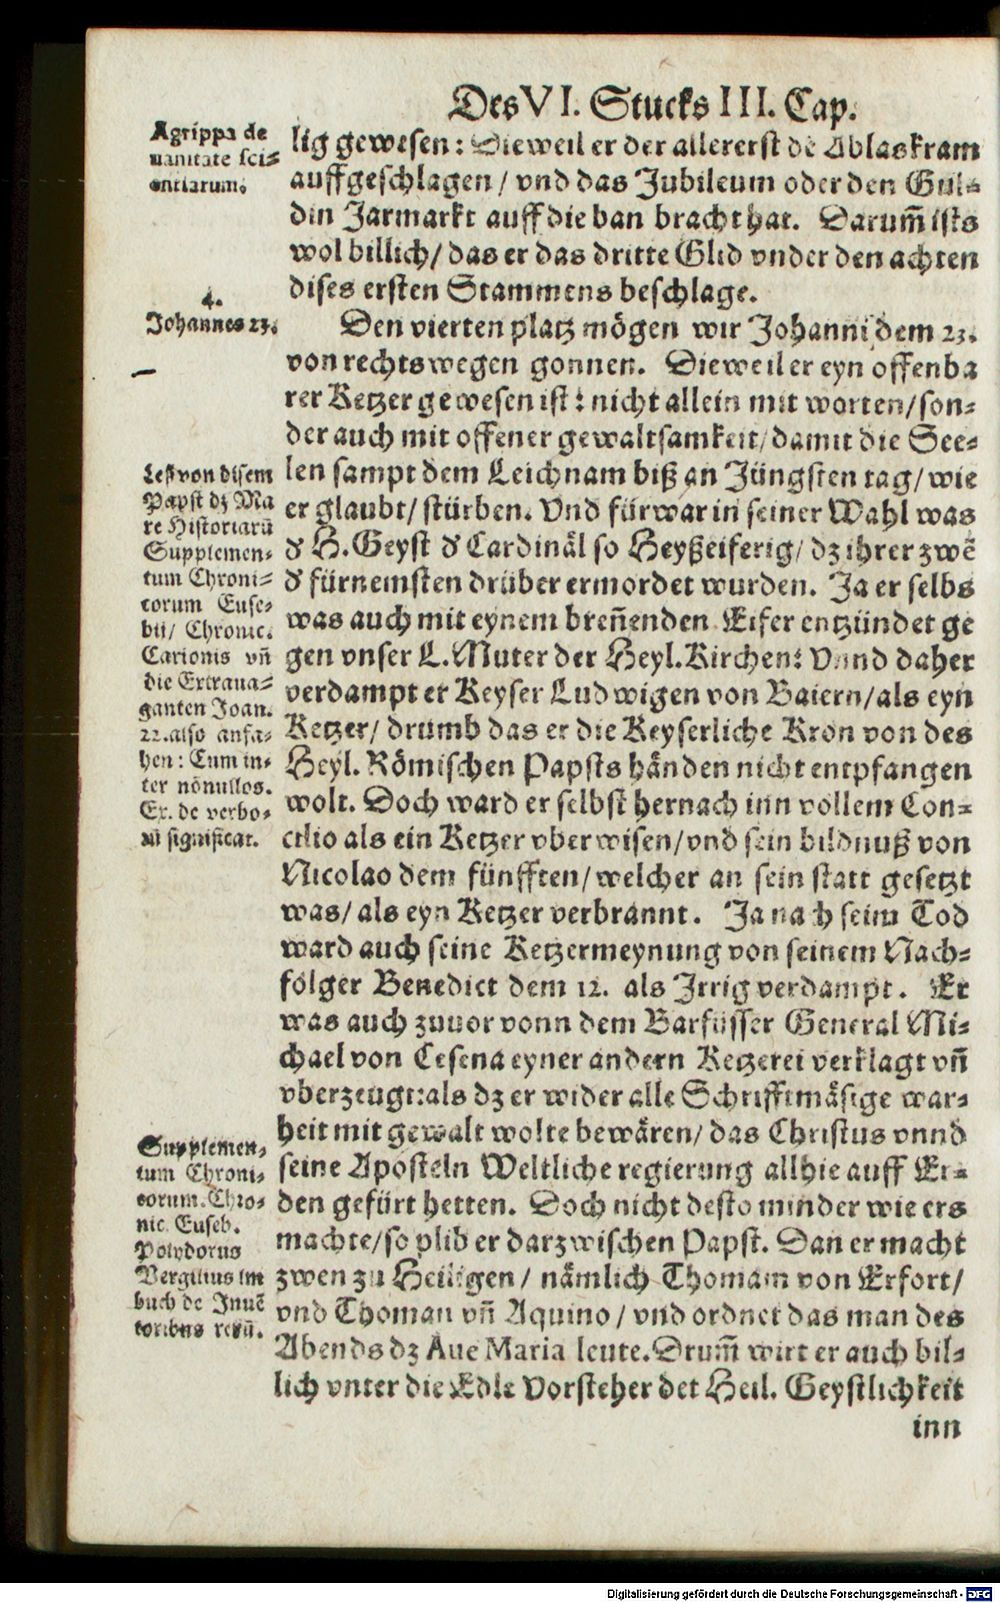 Des VI. Stucks III. Cap.
Agrippa de
uanitate sci-
entiarum.
lig gewesen: Dieweil er der allererst dē Ablaskram
auffgeschlagen / vnd das Jubileum oder den Gul-
din Jarmarkt auff die ban bracht hat. Darum̃ ists
wol billich / das er das dritte Glid vnder den achten
dises ersten Stammens beschlage.
4.
Johannes 23.
Den vierten platz mögen wir Johanni dem 23.
von rechts wegen gonnen. Dieweil er eyn offenba
rer Ketzer gewesen ist: nicht allein mit worten / son-
der auch mit offener gewaltsamkeit / damit die See-
len sampt dem Leichnam biß an Jüngsten tag / wie
er glaubt / stürben. Vnd fürwar in seiner Wahl was
d' H. Geyst d' Cardinäl so Heyßeiferig / dz ihrer zwē
d' fürnemsten drüber ermordet wurden. Ja er selbs
was auch mit eynem breñenden Eifer entzündet ge
gen vnser L. Muter der Heyl. Kirchen: Vnnd daher
verdampt er Keyser Ludwigen von Baiern / als eyn
Ketzer / drumb das er die Keyserliche Kron von des
Heyl. Römischen Papsts händen nicht entpfangen
wolt. Doch ward er selbst hernach inn vollem Con-
cilio als ein Ketzer vberwisen / vnd sein bildnuß von
Nicolao dem fünfften / welcher an sein statt gesetzt
was / als eyn Ketzer verbrannt. Ja nach seim Tod
ward auch seine Ketzermeynung von seinem Nach-
folger Benedict dem 12. als Irrig verdampt. Er
was auch zuuor vonn dem Barfüsser General Mi-
chael von Cesena eyner andern Ketzerei verklagt vñ
vberzeugt: als dz er wider alle Schrifftmäsige war-
heit mit gewalt wolte bewären / das Christus vnnd
seine Aposteln Weltliche regierung allhie auff Er-
den gefürt hetten. Doch nicht desto minder wie ers
machte / so plib er darzwischen Papst. Dan er macht
zwen zu Heiligen / nämlich Thomam von Erfort /
vnd Thoman vñ Aquino / vnd ordnet das man des
Abends dz Aue Maria leute. Drum̃ wirt er auch bil-
lich vnter die Edle Vorsteher det Heil. Geystlichkeit
inn
Leß von disem
Papst dz Ma
re Historiarū
Supplemen-
tum Chroni-
corum Euse-
bii / Chronic.
Carionis vñ
die Extraua-
ganten Joan.
22. also anfa-
hen: Cum in-
ter nōnullos.
Ex. de verbo-
rū significat.
Supplemen-
tum Chroni-
corum. Chro-
nic. Euseb.
Polydorus
Vergilius im
buch de Inuē
toribus rerū.
Digitalisierung gefördert durch die Deutsche Forschungsgemeinschaft - DFG